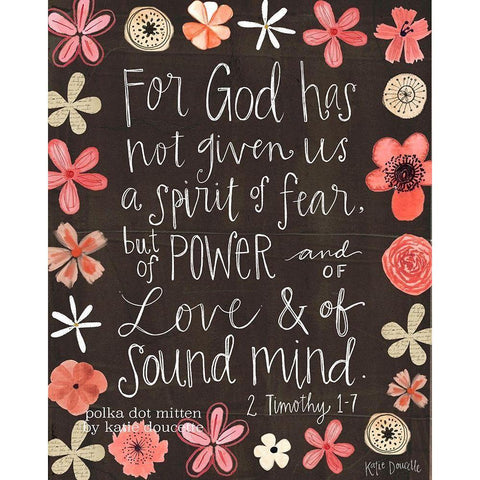 For God has
not given us
a spirit of fear,
but of POWER and of
Love & of
sound mind.
2 Timothy 1-7
polka dot mitten
by katie doucette
Katie Doucette